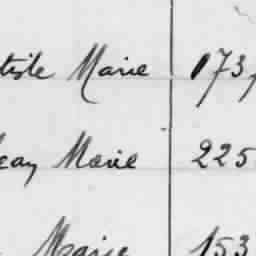 tiste Marie 173,
Jean Marie 225
Marie 153